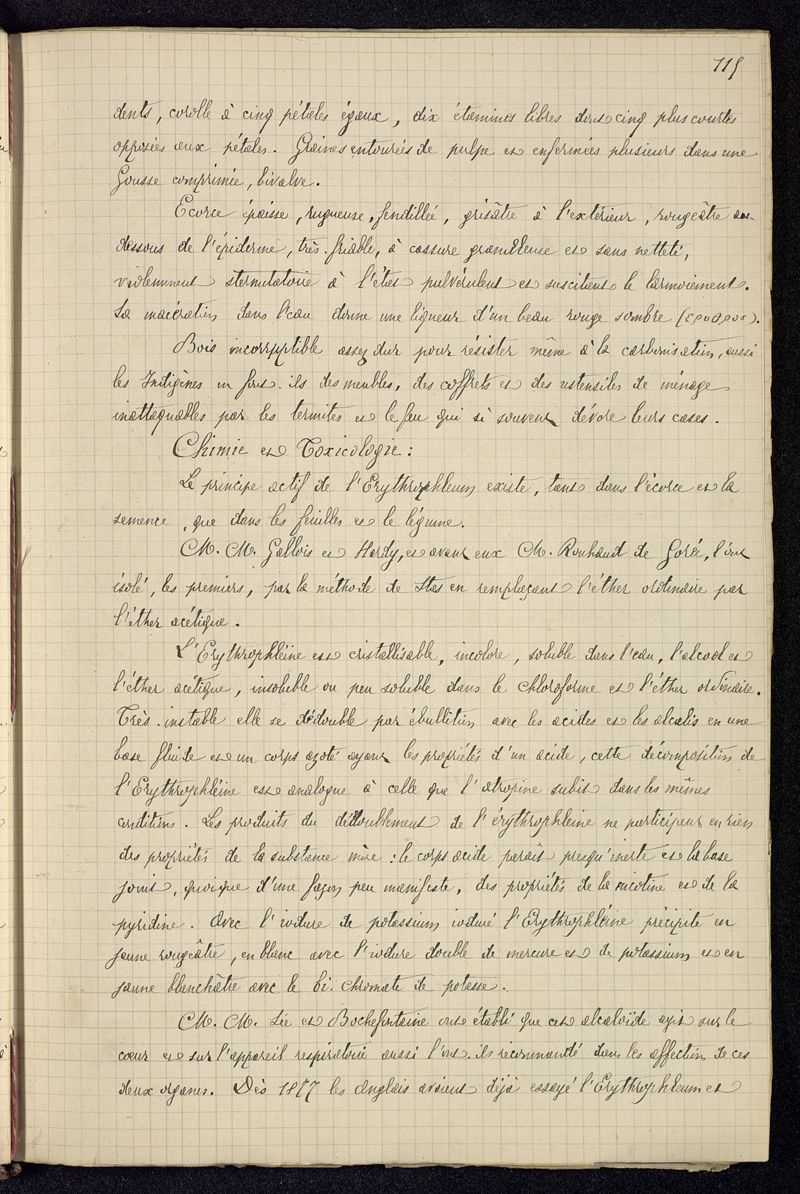 115
dents, corolle à cinq pétales égaux, dix étamines libres dont cinq plus courtes
opposées aux pétales. Graines entourées de pulpe et enfermées plusieurs dans une
Gousse comprimée, bivalve.
Ecorce épaisse, rugueuse, fendillée, grisâtre à l'extérieur, rougeâtre au-
dessous de l'épiderme, très-friable, à cassure granuleuse et sans netteté,
violemment sternutatoire à l'état pulvérulent et suscitant le larmoiement.
Sa macération dans l'eau donne une liqueur d'un beau rouge sombre
Bois incorruptible assez dur pour résister même à la carbonisation, aussi
les Indigènes en font-ils des meubles, des coffrets et des ustensiles de ménage
inattaquables par les termites et le feu qui si souvent dévore leurs cases.
Chimie et Toxicologie:
Le principe actif de l'Erythrophleum existe, tant dans l'écorce et la
semence, que dans les feuilles et le légume.
M. M. Gallois et Hardy, et avant eux M. Rouhaud de Gorée, l'ont
isolé, les premiers, par la méthode de Stas en remplaçant l'éther ordinaire par
l'éther acétique.
L'Erythrophléine est cristallisable, incolore, soluble dans l'eau, l'alcool et
l'éther acétique, insoluble ou peu soluble dans le chloroforme et l'éther ordinaire.
Très-instable elle se dédouble par ébullition avec les acides et les alcalis en une
base fluide et un corps azoté ayant les propriétés d'un acide, cette décomposition de
l'Erythrophléine est analogue à celle que l'atropine subit dans les mêmes
conditions. Les produits du dédoublement de l'érythrophleine ne participent en rien
des propriétés de la substance mère: le corps acide paraît presqu'inerte et la base
jouit, quoique d'une façon peu manifeste, des propriétés de la nicotine et de la
pyridine. Avec l'iodure de potassium ioduré l'Erythrophléine précipite en
jaune rougeâtre, en blanc avec l'iodure double de mercure et de potassium et en
jaune blanchâtre avec le bi-chromate de potasse.
M. M. Sée et Bochefontaine ont établi que cet alcaloïde agit sur le
cœur et sur l'appareil respiratoire aussi l'ont-ils recommandé dans les affections de ces
deux organes. Dès 1877 les Anglais avaient déjà essayé l'Erythrophleum et